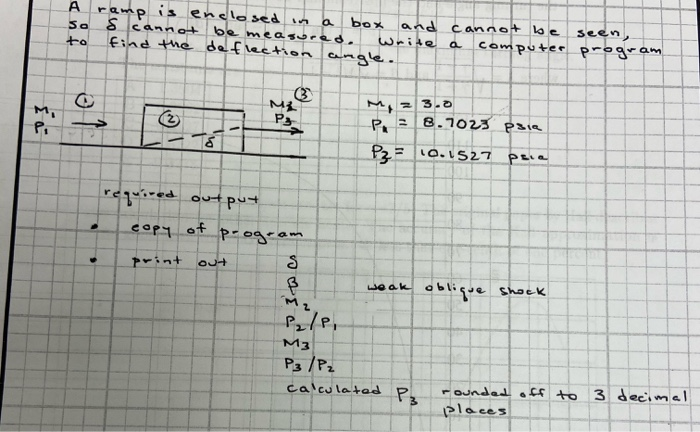 A ramp is enclosed in a box and cannot be seen,
so δ cannot be measured. Write a computer program
to find the deflection angle.
M₁ ① ② δ M₃ P₃ ③ M₁ = 3.0
P₁ P₁ = 8.7023 psia
P₃ = 10.1527 psia
required output
• copy of program
• print out δ
β weak oblique shock
M₂
P₂/P₁
M₃
P₃/P₂
calculated P₃ rounded off to 3 decimal
places